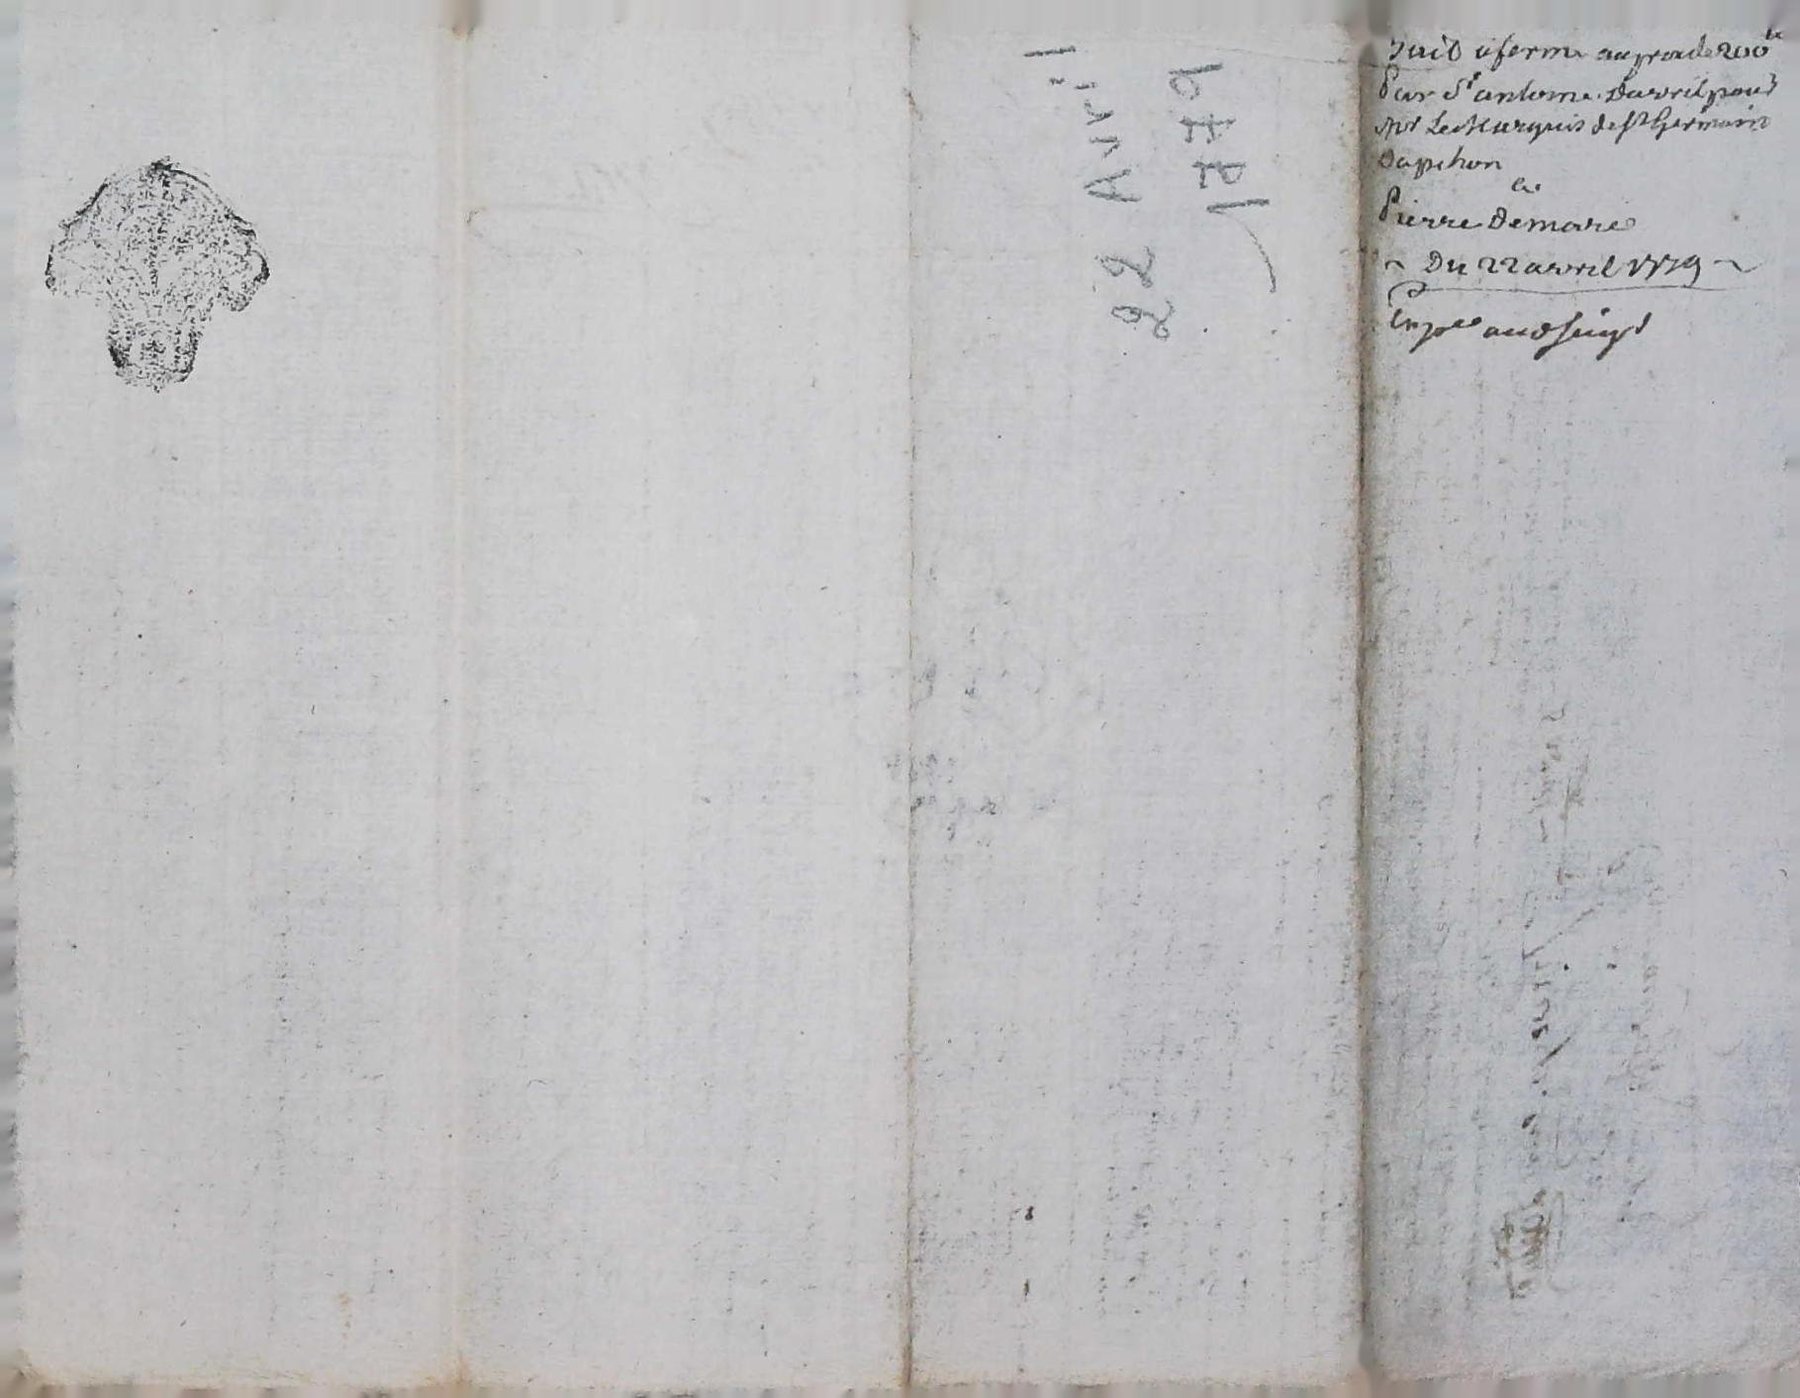 Bail à ferme au prix de 200 ₶
Par Sr antoine Davril pour
Mr Le Marquis de St Germain
Dapchon
à
Pierre Demare
~ Du 22 avril 1779 ~
audt seigr
22 Avril
1779